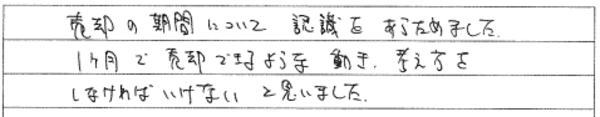 売却の期間について認識をあらためました。
1ヶ月で売却できるような動き、考え方を
しなければいけないと思いました。